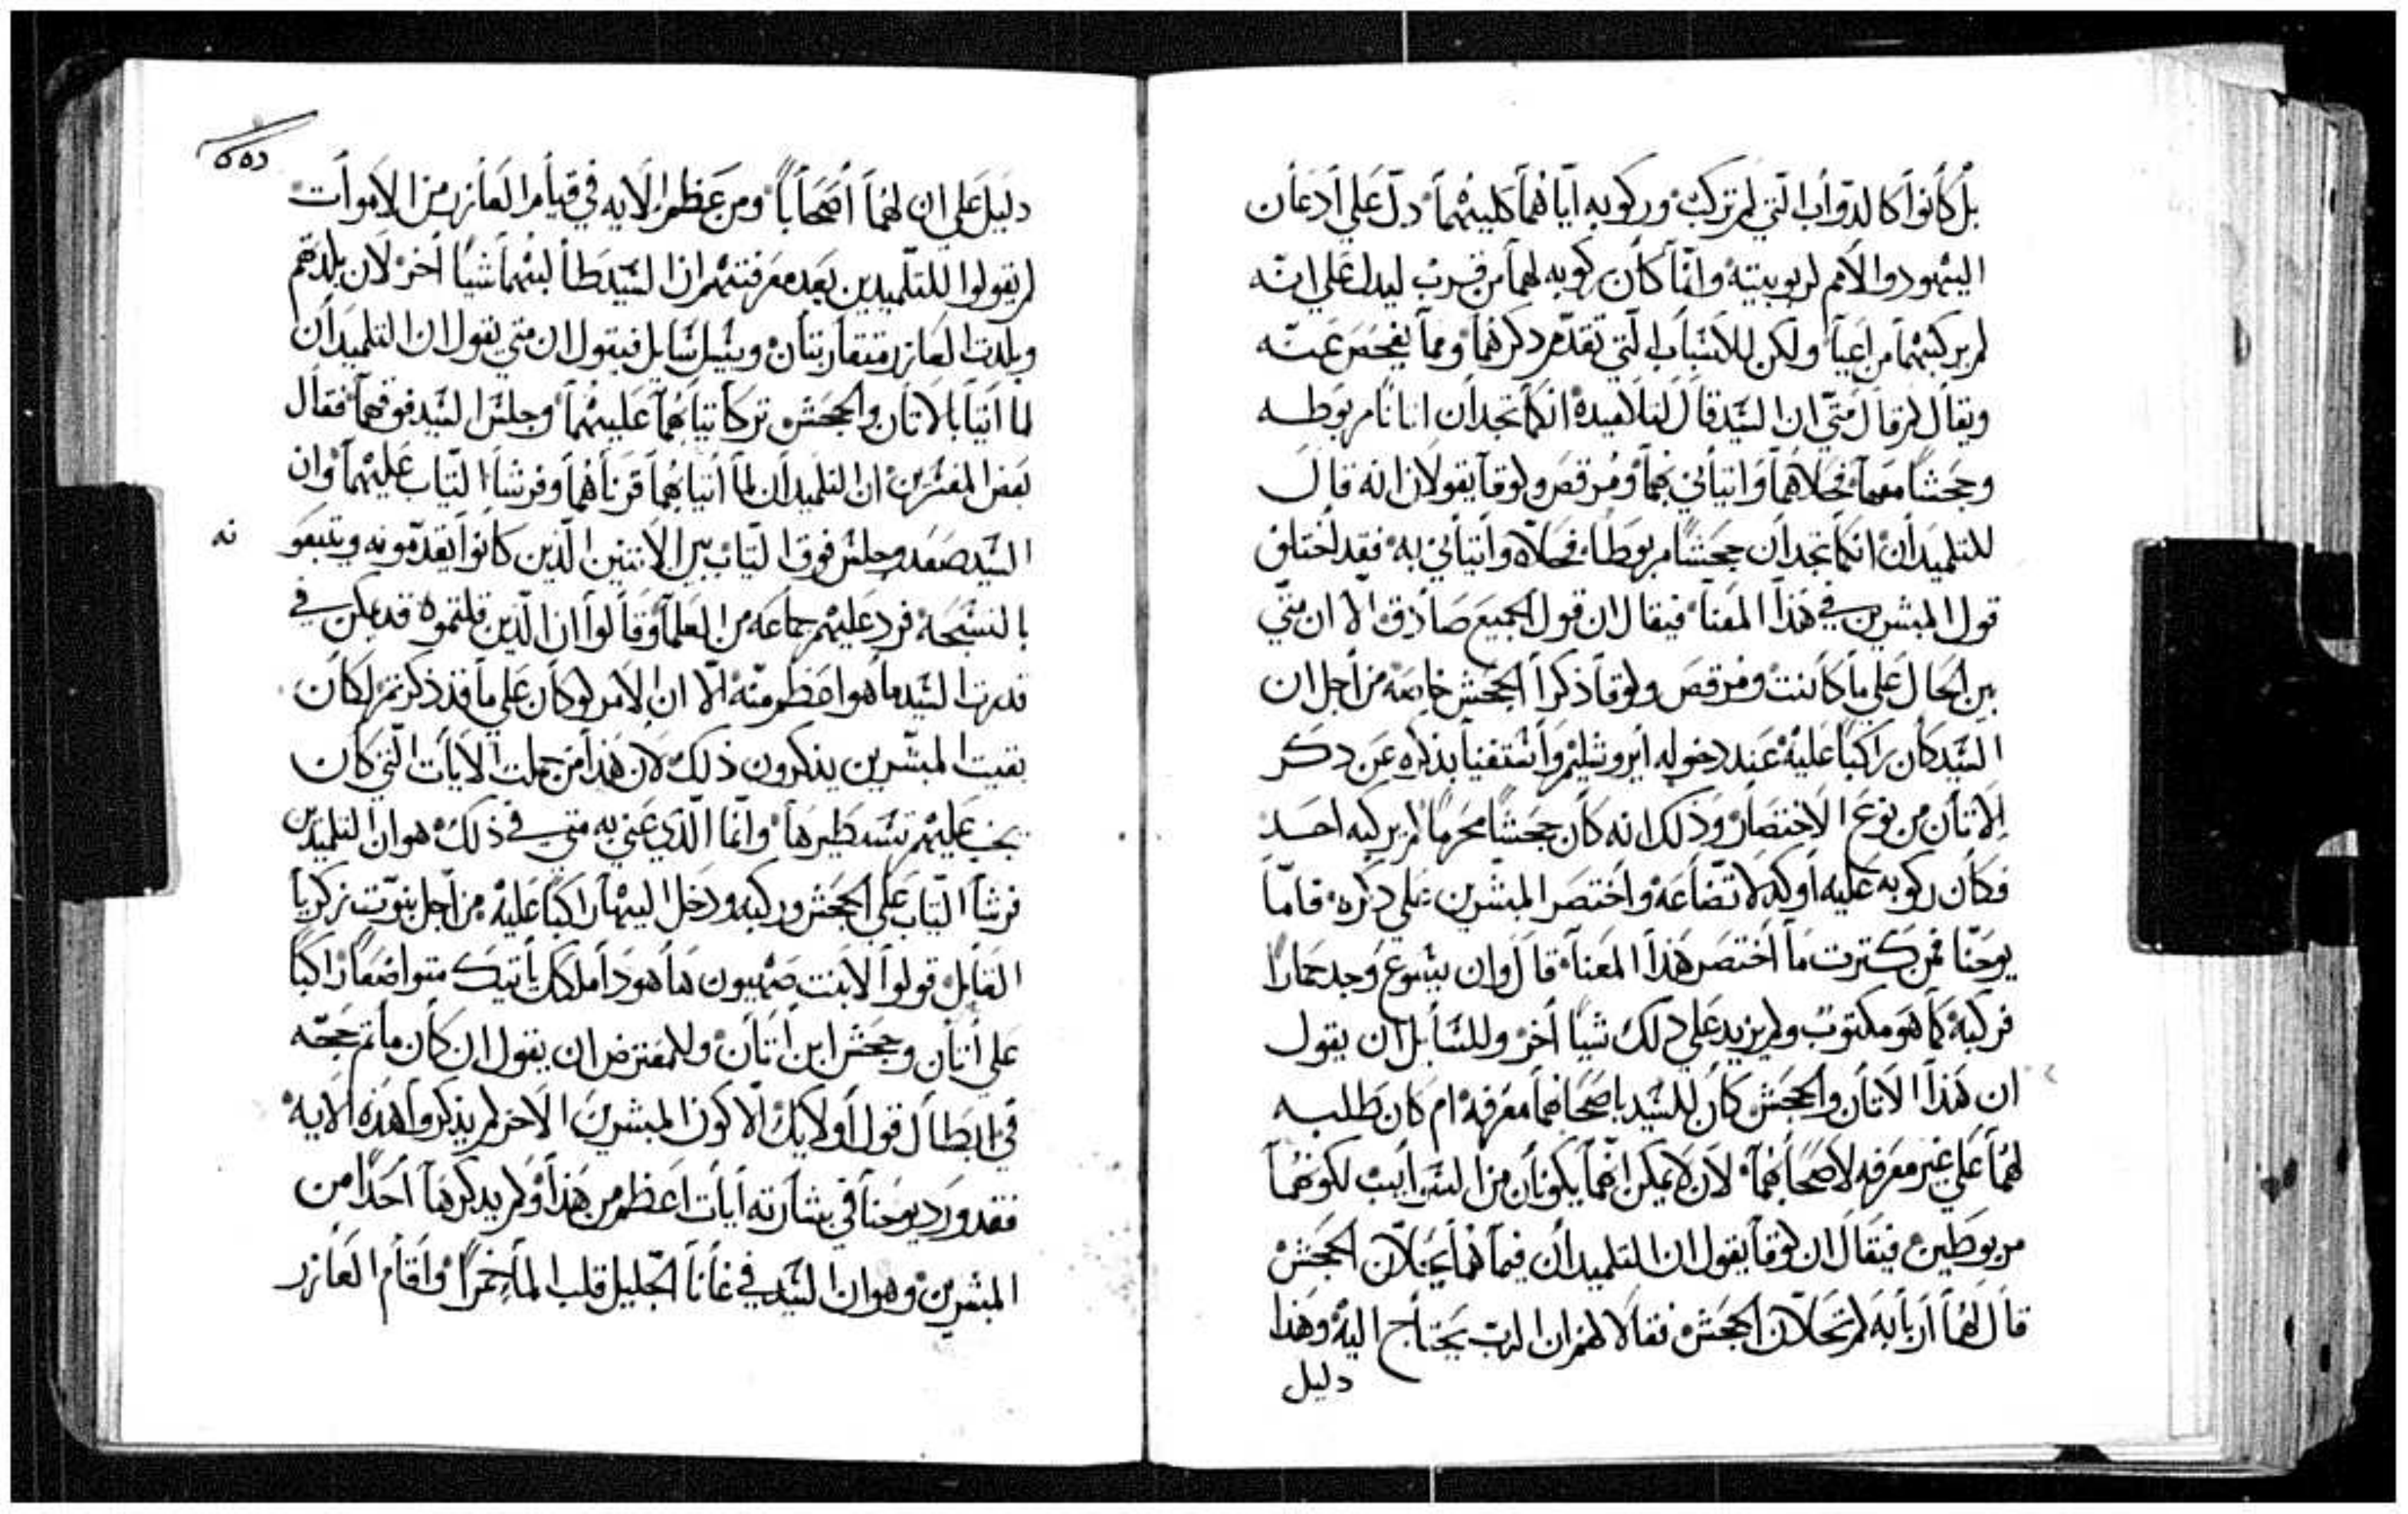 بل كأنوا كالدوأب التي لم تركب وركوبه اياهما كليهما دل علي أدعأن
اليهود والأمم لربوبيته وانما كأن ركوبه لهما من قرب ليدل علي انه
لم يركبهما من اعيا ولكن للأسبأب التي تقدم دكرهما ومما يفحص عنه
ويقأل لم قال متي ان السيد قال لتلأميده انكما تجدأن اتانا مربوطه
وجحشا معها فحلاهما وأتيأني بهما ومرقص ولوقا يقولان انه قال
للتلميدأن انكما تجدأن جحشا مربوطا فحلاه وأتيأني به فقد اختلف
قول المبشرين في هذا المعنا فيقال ان قول الجميع صادق الا ان متي
بين الحال علي ما كأنت ومرقص ولوقا ذكرا الجحش خاصه من أجل ان
السيد كان راكبا عليه عند دخوله أيروشليم وأستغنيا بذكره عن دكر
الاتأن من نوع الاختصار وذلك انه كأن جحشا محرما لم يركبه احد
فكأن ركوبه عليه أوكد لاتضاعه وأختصر المبشرين علي دكره فامّا
يوحنا فمن كترت ما أختصر هذا المعنا قال وان يسوع وجد حمارا
فركبه كما هو مكتوب ولم يزيد علي دلك شيا أخر وللسأيل ان يقول
ان هذا الاتأن والجحش كأن للسيد باصحابهما معرفه ام كان طلبه
لهما علي غير معرفه لاصحابهما لان لا يمكن انهما يكونأن من السَوأيب لكونهما
مربوطين فيقال ان لوقا يقول ان التلميدأن فيما هما يحلان الجحش
قال لهما أربأبه لم تحلان الجحش فقالا لهم ان الرب يحتأج اليه وهذا
دليل
دليل علي ان لهما أصحأبا ومن عظم الايه في قيأم العأزر من الاموأت
لم يقولوا للتلميدين بعد معرفتهم ان السيد طالبهما شيا أخر لان بلدهم
وبلدت العازر متقاربتأن ويسل سايل فيقول ان متي يقول ان التلميدأن
لما أتيا بالاتان والجحش تركا تيأبهما عليهما وجلس السيد فوقهما فقال
بعض المفسرين ان التلميدأن لما أتيا بهما قرنأهما وفرشا التياب عليهما وان
السيد صعد وجلس فوق التياب بين الأتنين الذين كانوا يقدمونه ويتبعونه
بالتسبحه فرد عليهم جماعه من العلما وقالوا ان الذين قلتموه قد يمكن في
قدرت السيد ما هو اعظم منه الا ان الأمر لو كان علي ما قد ذكرتم لكان
بقيت المبشرين يذكرون ذلك لان هذا من جملت الايأت التي كان
يجب عليهم تسطيرها وانما الذي عني به متي في ذلك هو ان التلميدين
فرشا التياب علي الجحش وركبه ودخل اليها راكبا عليه من أجل نبوت زكريا
القايل قولوا لابنت صهيون هأ هوذا ملكك يأتيك متواضعا راكبا
علي أتأن وجحش ابن أتأن وللمعترض ان يقول ان كان ما تم حجه
في ابطال قول أولايك الا كون المبشرين الأخر لم يذكروا هذه الايه
فقد ورد يوحنا في بشارته أيات اعظم من هذا ولم يدكرها أحدا من
المبشرين وهو ان السيد في غانا الجليل قلب الما خمرا وأقأم العازر